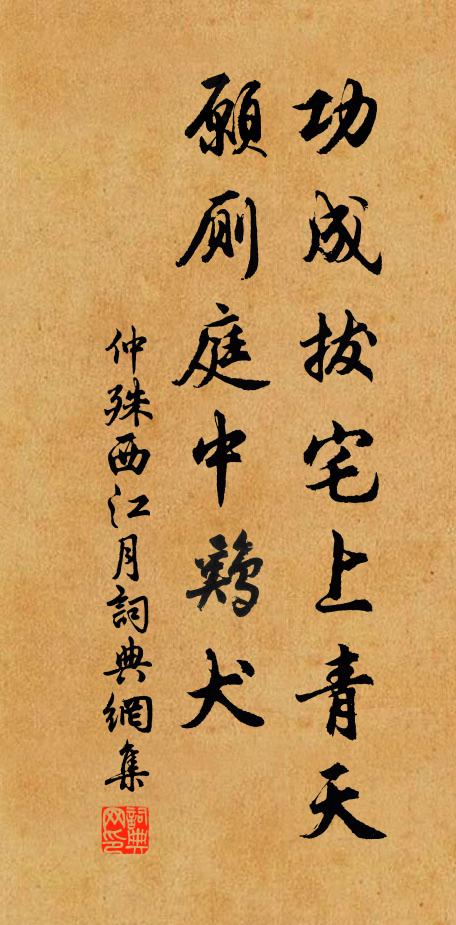 功成拔宅上青天
願厠庭中鷄犬
仲殊西江月詞典網集
詞典网印